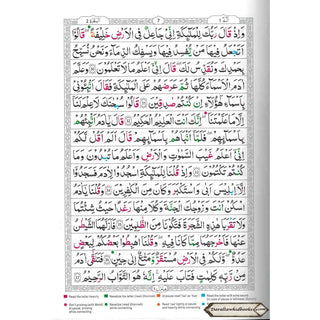 البقرة ٢
7
الٓمٓ ١
وَاِذْ قَالَ رَبُّكَ لِلْمَلٰٓئِكَةِ اِنِّيْ جَاعِلٌ فِي الْاَرْضِ خَلِيْفَةً ؕ قَالُوْٓا
اَتَجْعَلُ فِيْهَا مَنْ يُّفْسِدُ فِيْهَا وَيَسْفِكُ الدِّمَآءَ ۚ وَنَحْنُ نُسَبِّحُ
بِحَمْدِكَ وَنُقَدِّسُ لَكَ ؕ قَالَ اِنِّيْٓ اَعْلَمُ مَا لَا تَعْلَمُوْنَ ۝ وَعَلَّمَ
اٰدَمَ الْاَسْمَآءَ كُلَّهَا ثُمَّ عَرَضَهُمْ عَلَى الْمَلٰٓئِكَةِ ۙ فَقَالَ اَنْۢبِـُٔوْنِيْ
بِاَسْمَآءِ هٰٓؤُلَآءِ اِنْ كُنْتُمْ صٰدِقِيْنَ ۝ قَالُوْا سُبْحٰنَكَ لَا عِلْمَ لَنَآ
اِلَّا مَا عَلَّمْتَنَا ؕ اِنَّكَ اَنْتَ الْعَلِيْمُ الْحَكِيْمُ ۝ قَالَ يٰٓاٰدَمُ اَنْۢبِئْهُمْ
بِاَسْمَآئِهِمْ ۚ فَلَمَّآ اَنْۢبَاَهُمْ بِاَسْمَآئِهِمْ ۙ قَالَ اَلَمْ اَقُلْ لَّكُمْ
اِنِّيْٓ اَعْلَمُ غَيْبَ السَّمٰوٰتِ وَالْاَرْضِ ۙ وَاَعْلَمُ مَا تُبْدُوْنَ وَمَا
كُنْتُمْ تَكْتُمُوْنَ ۝ وَاِذْ قُلْنَا لِلْمَلٰٓئِكَةِ اسْجُدُوْا لِاٰدَمَ فَسَجَدُوْٓا
اِلَّآ اِبْلِيْسَ ؕ اَبٰى وَاسْتَكْبَرَ ۗ وَكَانَ مِنَ الْكٰفِرِيْنَ ۝ وَقُلْنَا يٰٓاٰدَمُ
اسْكُنْ اَنْتَ وَزَوْجُكَ الْجَنَّةَ وَكُلَا مِنْهَا رَغَدًا حَيْثُ شِئْتُمَا ۪
وَلَا تَقْرَبَا هٰذِهِ الشَّجَرَةَ فَتَكُوْنَا مِنَ الظّٰلِمِيْنَ ۝ فَاَزَلَّهُمَا الشَّيْطٰنُ
عَنْهَا فَاَخْرَجَهُمَا مِمَّا كَانَا فِيْهِ ۪ وَقُلْنَا اهْبِطُوْا بَعْضُكُمْ لِبَعْضٍ
عَدُوٌّ ۚ وَلَكُمْ فِي الْاَرْضِ مُسْتَقَرٌّ وَّمَتَاعٌ اِلٰى حِيْنٍ ۝ فَتَلَقّٰٓى اٰدَمُ
مِنْ رَّبِّهٖ كَلِمٰتٍ فَتَابَ عَلَيْهِ ؕ اِنَّهٗ هُوَ التَّوَّابُ الرَّحِيْمُ ۝